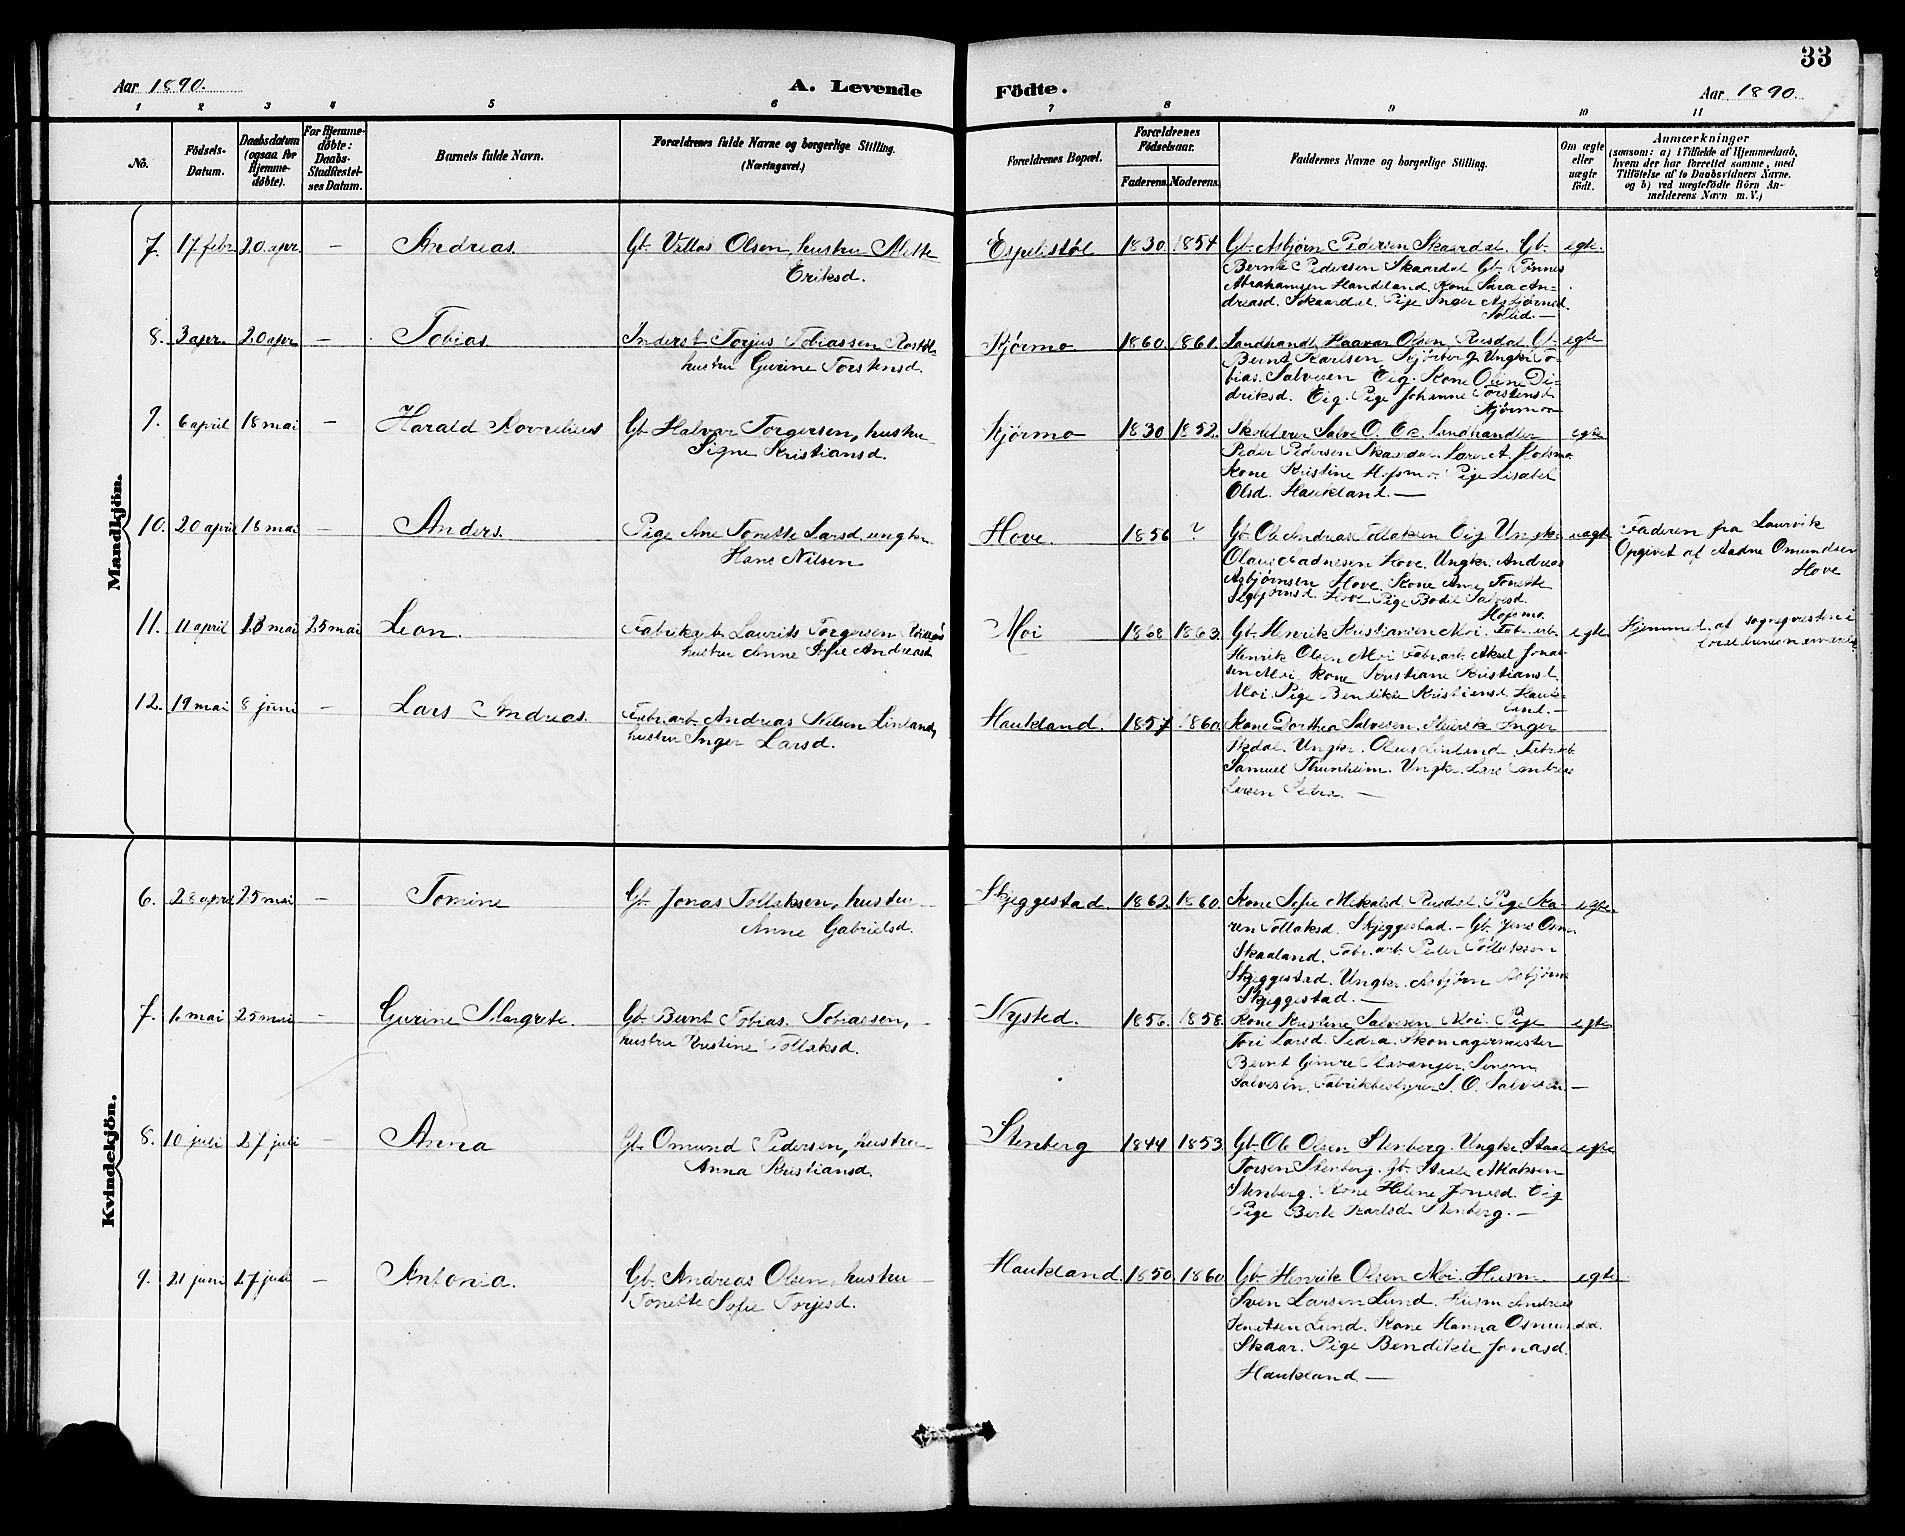 33
Aar 1890.
A. Levende
Födte.
Aar 1890.
1 2 3 4 5 6 7 8 9 10 11
No.
Födsels-
Datum.
Daabsdatum
(ogsaa for
Hjemme-
döbte).
For Hjemme-
döbte:
Daabs-
Stadfæstel-
ses Datum.
Barnets fulde Navn.
Forældrenes fulde Navne og borgerlige Stilling.
(Næringsvei.)
Forældrenes Bopæl.
Forældrenes
Födselsaar.
Faderens. Moderens.
Faddernes Navne og borgerlige Stilling.
Om ægte
eller
uægte
födt.
Anmærkninger
(saasom: a) i Tilfælde af Hjemmedaab,
hvem der har forrettet samme, med
Tilföielse af to Daabsvidners Navne.
og b) ved uægtefödte Börn An-
melderens Navn m. V.)
Mandkjön.
7. 17 febr 20 apr. — Andreas. Gb. Villas Olsen, hustru Mette
Eriksd.
Espelistøl 1830 1854 Gb. Asbjørn Pedersen Skaardal. Gb. egte.
Bernt Pedersen Skaardal Gb. Tønnes
Abrahamsen Handeland. Kone Sara An-
dreasd. Skaardal. Pige Inger Asbjørnsd.
8. 3 apr. 20 apr — Tobias. Inderst Torjus Tobiassen
hustru Gurine Torstensd.
Kjørmo 1860. 1861. Landhandl. Haavar Olsen Rusdal. Gb. egte
Bernt Karlsen Ungkr To-
bias Salvesen Eig. Kone Oline Di-
driksd. Eig. Pige Johanne Torstensd
Kjørmo
9. 6 april 18 mai — Harald Kornelius Gb. Halvor Torgersen, hustru
Signe Kristiansd.
Kjørmo 1830 1852. Salve O. Eie. Landhandler egte
Peder Pedersen Skaardal. Hofsmo.
Kone Kristine Hofsmo. Pige Lisabet
Olsd. Haukland. —
10. 20 april 18 mai — Anders. Pige Ane Tonette Larsd. ungkr.
Hans Nilsen
Hove. 1856 ? Gb. Ole Andreas Tollaksen Eig Ungkr. uægte
Olaus Aadnesen Hove. Ungkr. Andreas
Asbjørnsen Hove. Kone Ane Tonette
Hove Pige Bodil Salvesd.
Hofsmo.
Faderen fra Laurvik
Opgivet af Aadne Omundsen
Hove
11. 11 april 18 mai 25 mai Leon. Fabrikarb. Laurits Torgersen
hustru Anne Sofie Andreasd.
Moi 1868 1863 Gb. Henrik Kristiansen Moi. Fab. arb. egte
Henrik Olsen Moi Fabr. arb. Aksel Jonas-
sen Moi. Kone Kristiane Kristiansd.
Moi Pige Bendikte Kristiansd. Hauk-
land. —
Hjemmed. af sognepresten i
12. 19 mai 8 juni — Lars Andreas. Fabr. arb. Andreas Nilsen Linland,
hustru Inger Larsd.
Haukland. 1857 1860. Kone Dorthea Salvesen. Inger
Ungkr. Olaus Linland. Fabr. arb.
Samuel Thunheim. Ungkr. Lars Andreas
Larsen Sedra. —
Kvindekjön.
6. 28 april 25 mai — Tomine Gb. Jonas Tollaksen, hustru
Anne Gabrielsd.
Skjeggestad 1862. 1860. Kone Sofie Mikalsd. Rusdal. Pige Ka- egte
ren Tollaksd. Skjeggestad. — Gb. Jens Osm.
Skaaland. Fabr. arb. Peder Tollaksen
Skjeggestad. Ungkr. Asbjørn Asbjørns.
Skjeggestad. —
7. 1. mai 25 mai — Gurine Margrete. Gb. Bernt Tobias Tobiassen,
hustru Kristine Tollaksd.
Nysted. 1856. 1858. Kone Kristine Salvesen Moi. Pige egte
Tori Larsd. Sedra. Skomagermester
Bernt Gimre Stavanger.
Salvesen. Fabrikbestyrer S. O. Salvesen —
8. 10 juli 27 juli — Anna Gb. Omund Pedersen, hustru
Anna Kristiansd.
Stenberg 1844 1853. Gb. Ole Olsen Stenberg. Ungkr. Staale egte
Torsen Stenberg. Gb. Staale
Stenberg. Kone Helene Jonasd. Eig
Pige Berte Karlsd Stenberg. —
9. 21 juni 27 juli — Antonia. Gb. Andreas Olsen, hustru
Tonette Sofie Torjesd.
Haukland. 1850 1860 Gb. Henrik Olsen Moi. Husm. egte
Sven Larsen Lund. Husm Andreas
Knutsen Lund. Kone Hanna Osmundsd.
Skaar. Pige Bendikte Jonasd.
Haukland —